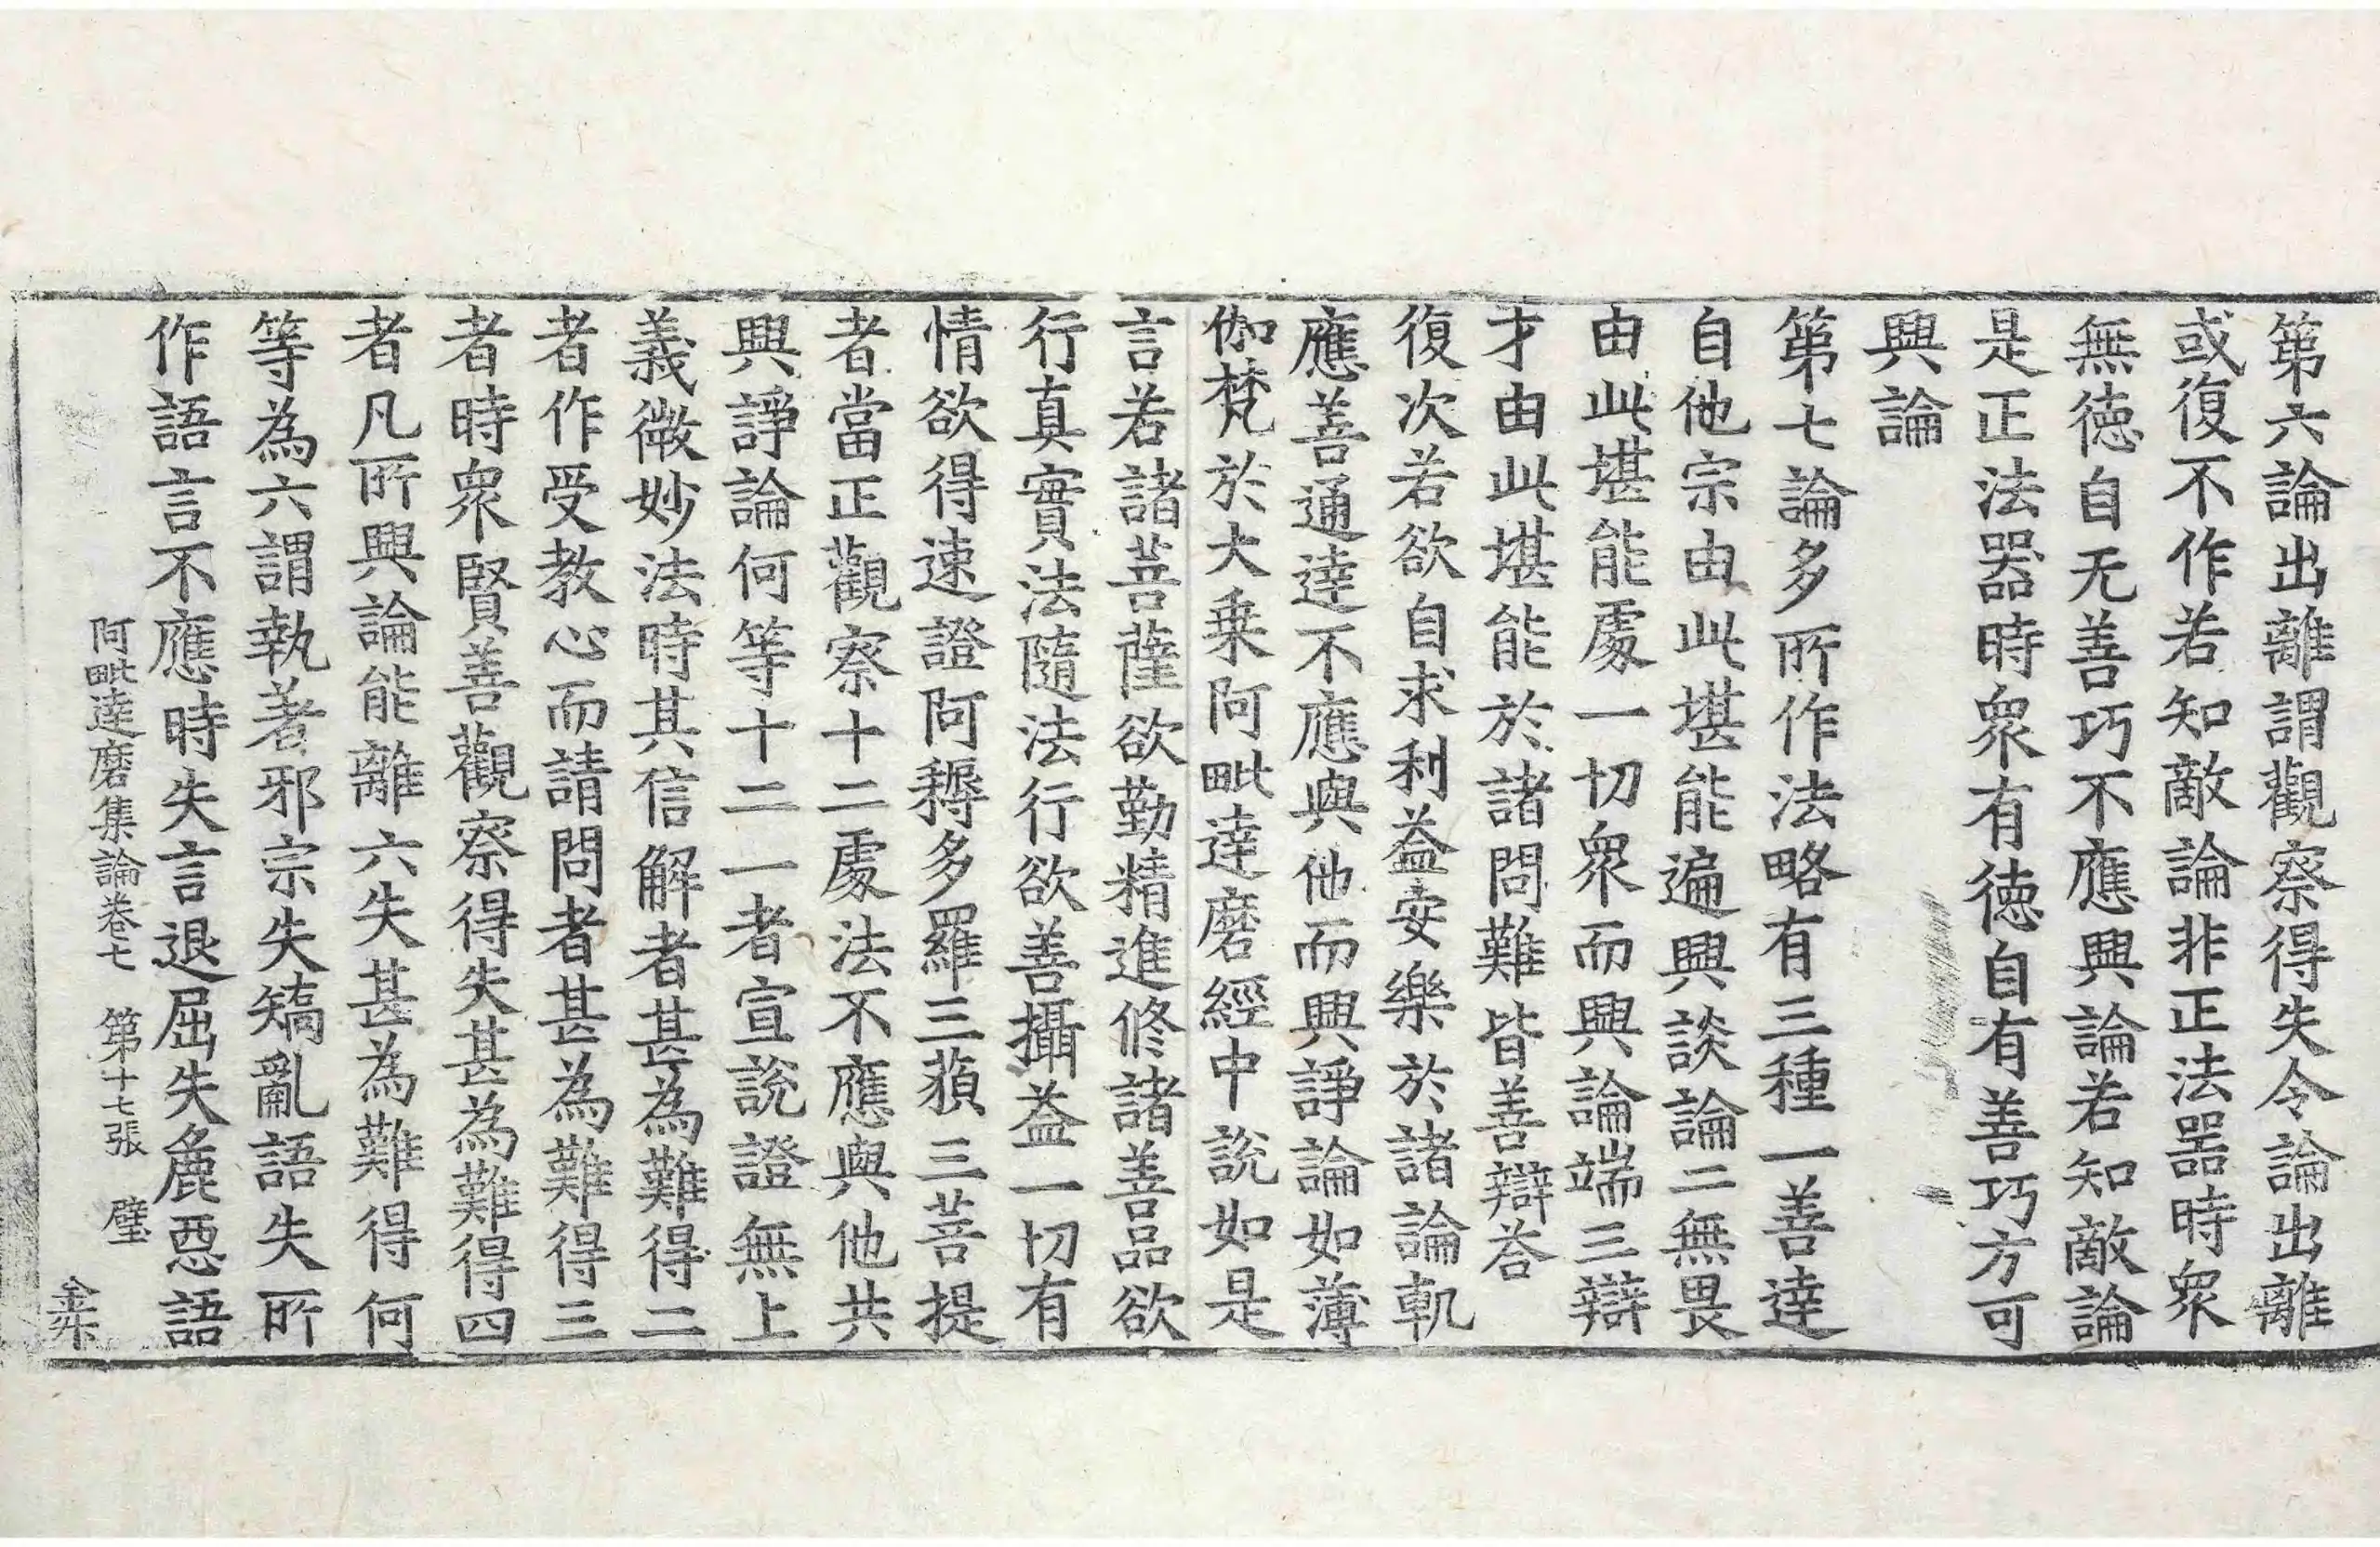 第六論出離謂觀察得失令論出離
或復不作若知敵論非正法器時衆
無徳自无善巧不應興論若知敵論
是正法器時衆有徳自有善巧方可
興論
第七論多所作法略有三種一善達
自他宗由此堪能遍興談論二無畏
由此堪能處一切衆而興論端三辯
才由此堪能於諸問難皆善辯荅
復次若欲自求利益安樂於諸論軌
應善通達不應與他而興諍論如薄
伽梵於大乗阿毗達磨經中說如是
言若諸菩薩欲勤精進修諸善品欲
行真實法隨法行欲善攝益一切有
情欲得速證阿耨多羅三藐三菩提
者當正觀察十二處法不應與他共
興諍論何等十二一者宣說證無上
義微妙法時其信解者甚為難得二
者作受教心而請問者甚為難得三
者時衆賢善觀察得失甚為難得四
者凡所興論能離六失甚為難得何
等為六謂執著邪宗失矯亂語失所
作語言不應時失言退屈失麁惡語
阿毗達磨集論卷七　第十七張　璧